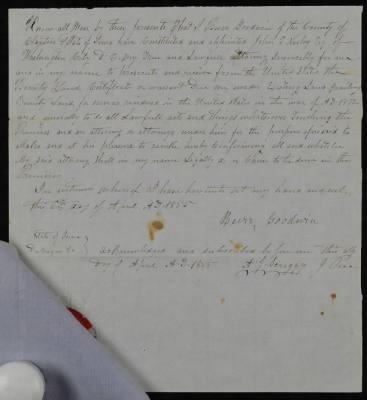 Know all Men by these presents That I Burr Goodwin of the County of
Clayton & State of Iowa have Constituted and appointed John S. of
Washington City D. C. my true and Lawful attorney irrevocably for me
and in my name to presents and receive from the United States the
Bounty Land Certificate or warrant Due me under Existing Laws granting
Bounty Land for services rendered in the United States in the war of AD 1812
and generally to do all Lawfull acts and things whatsoever touching the
Premises and an attorney or attorneys under him for the purpose aforesaid to
Make and at his pleasure to revoke hereby Confirming all and which
My said attorney shall in my name Legally do or Cause to be done in the
Premises
In witness whereof I have hereunto set my hand and seal
this 6th day of April A.D. 1855
Burr Goodwin
State of Iowa
acknowledged and subscribed before me this 6th
Day of April A.D. 1855